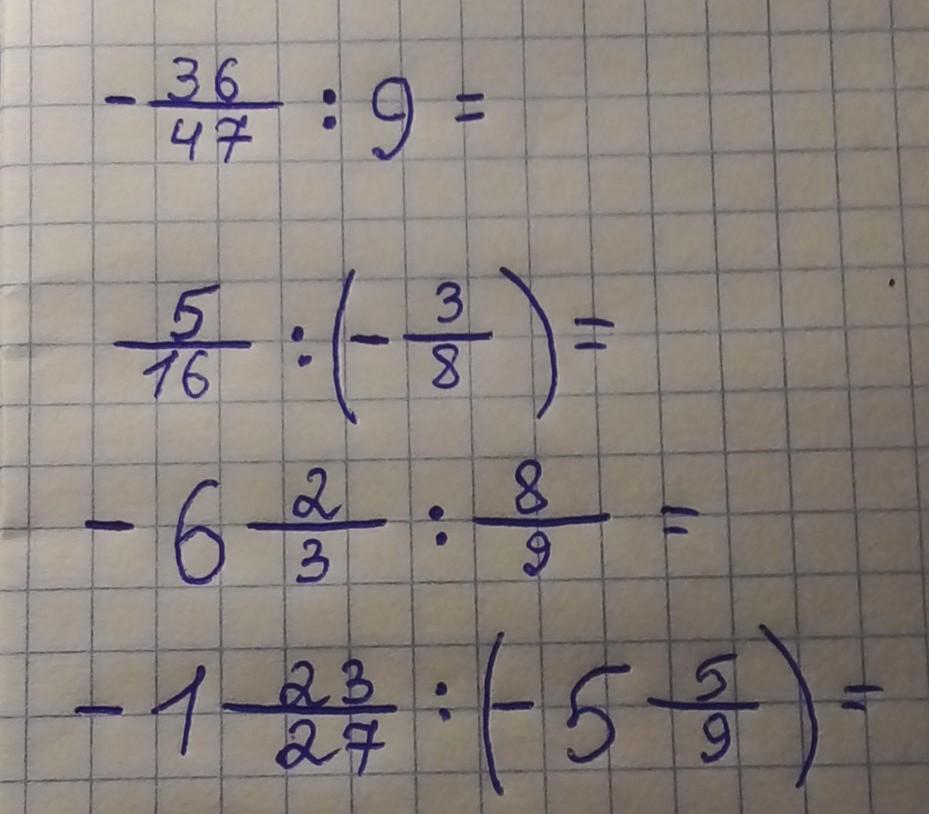 - 36/47 : 9 =
5/16 : (- 3/8) =
- 6 2/3 : 8/9 =
- 1 23/27 : (- 5 5/9) =